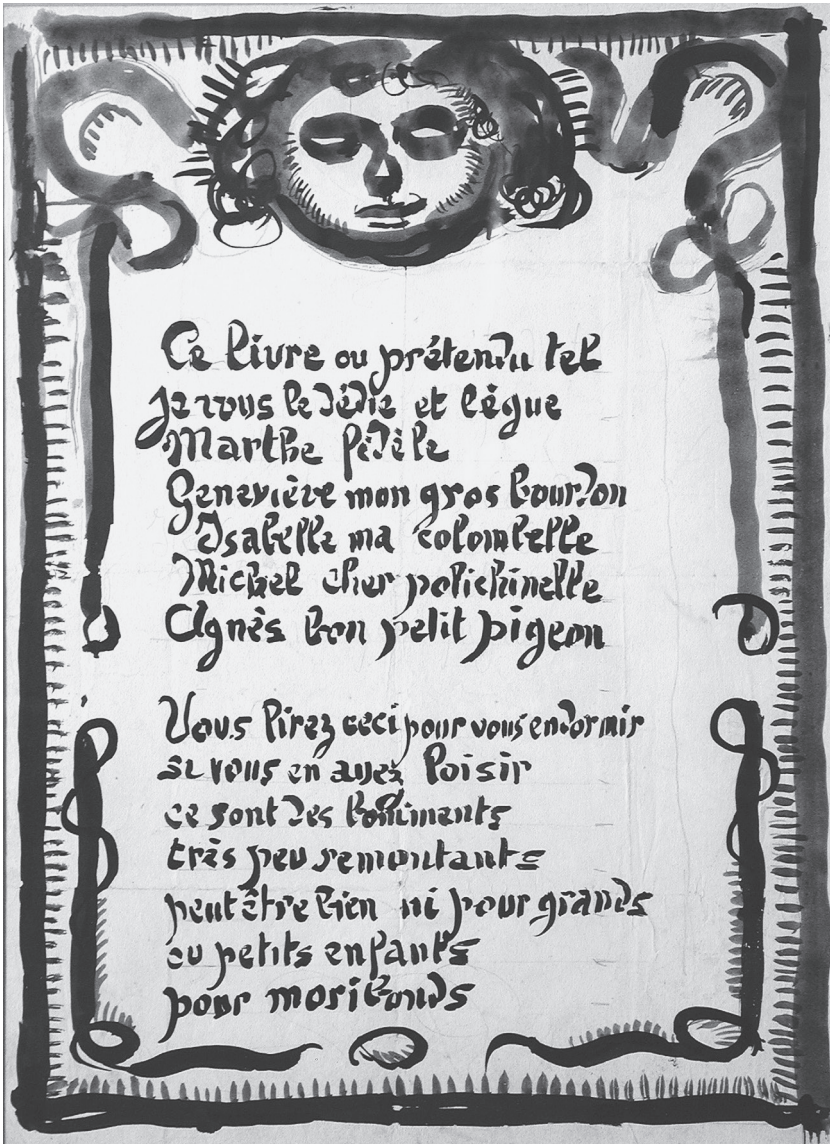 Ce livre ou prétendu tel
je vous le dédie et lègue
Marthe fidèle
Geneviève mon gros bourdon
Isabelle ma colombelle
Michel cher polichinelle
Agnès bon petit pigeon
Vous lirez ceci pour vous endormir
si vous en avez loisir
ce sont des boniments
très peu remontants
peut être bien ni pour grands
ou petits enfants
pour moribonds